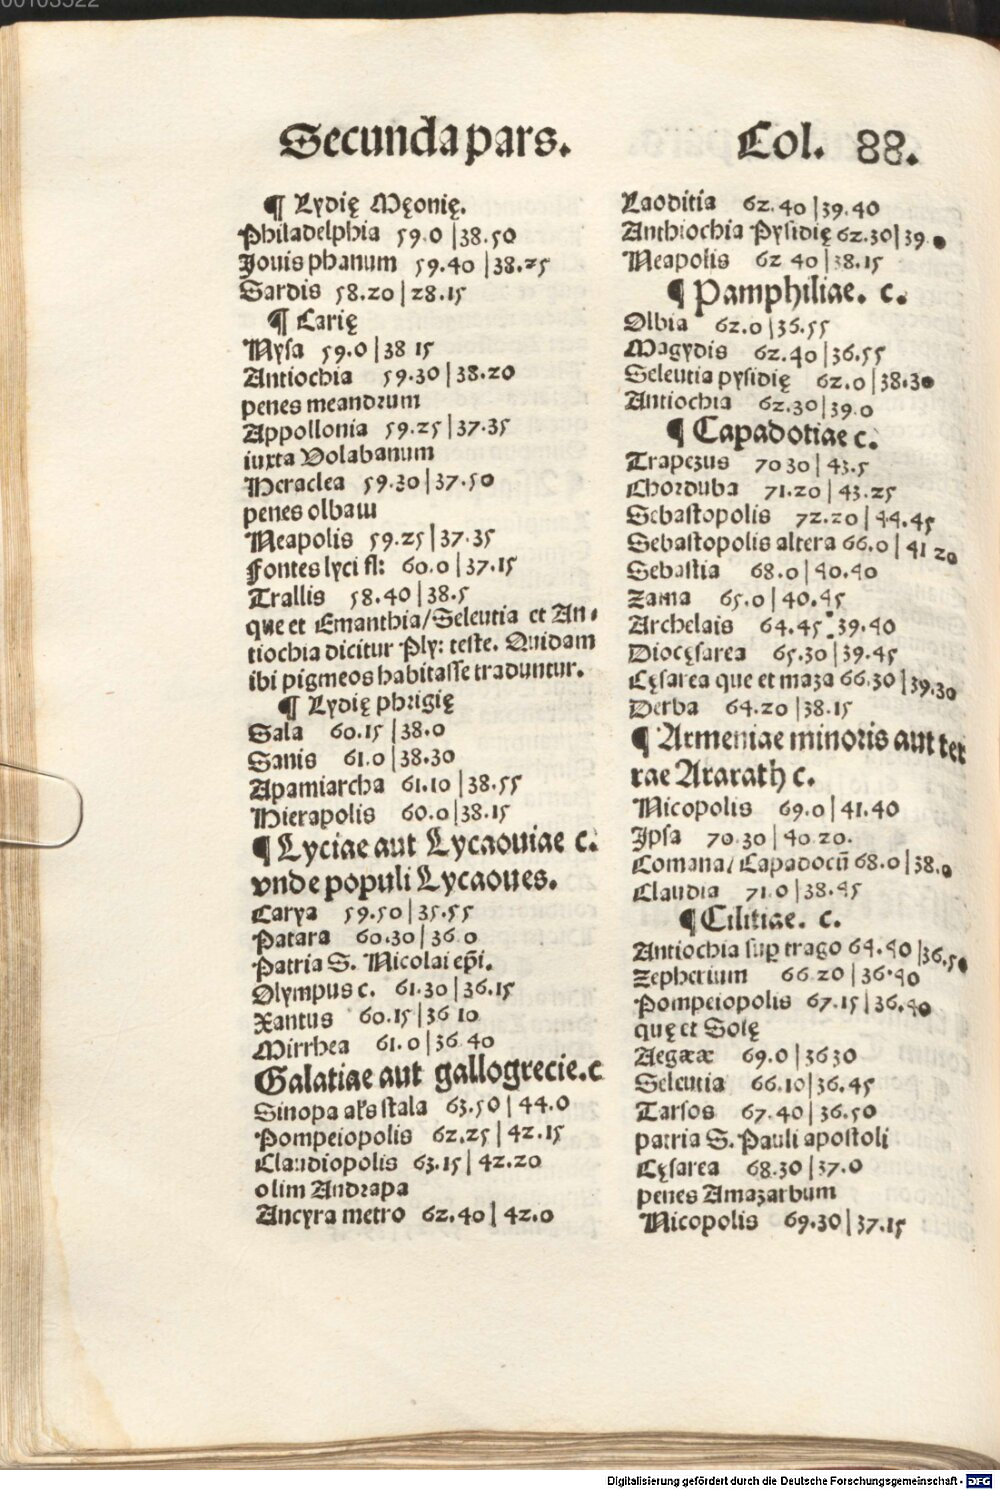 00103522
Secunda pars. Col. 88.
¶ Lydię Męonię.
Philadelphia 59.0 | 38.50
Iouis phanum 59.40 | 38.25
Sardis 58.20 | 28.15
¶ Carię
Nysa 59.0 | 38 15
Antiochia 59.30 | 38.20
penes meandrum
Appollonia 59.25 | 37.35
iuxta Dolabanum
Heraclea 59.30 | 37.50
penes olbaw
Neapolis 59.25 | 37.35
Fontes lyci fl: 60.0 | 37.15
Trallis 58.40 | 38.5
que et Emanthia/Seleutia et An-
tiochia dicitur Ply: teste. Quidam
ibi pigmeos habitasse traduntur.
¶ Lydię phrigię
Sala 60.15 | 38.0
Sanis 61.0 | 38.30
Apamiarcha 61.10 | 38.55
Hierapolis 60.0 | 38.15
¶ Lyciae aut Lycaouiae c.
vnde populi Lycaoues.
Carya 59.50 | 35.55
Patara 60.30 | 36 0
Patria S. Nicolai ep̄i.
Olympus c. 61.30 | 36.15
Xantus 60.15 | 36 10
Mirrhea 61.0 | 36 40
Galatiae aut gallogrecie.c
Sinopa als stala 63.50 | 44.0
Pompeiopolis 62.25 | 42.15
Claudiopolis 63.15 | 42.20
olim Andrapa
Ancyra metro 62.40 | 42.0
Laoditia 62.40 | 39.40
Anthiochia Pysidię 62.30 | 39.0
Neapolis 62 40 | 38.15
¶ Pamphiliae. c.
Olbia 62.0 | 36.55
Magydis 62.40 | 36.55
Seleutia pysidię 62.0 | 38.30
Antiochia 62.30 | 39.0
¶ Capadotiae c.
Trapezus 70 30 | 43.5
Chorduba 71.20 | 43.25
Sebastopolis 72.20 | 44.45
Sebastopolis altera 66.0 | 41 20
Sebastia 68.0 | 40.40
Zama 65.0 | 40.45
Archelais 64.45 : 39.40
Diocęsarea 65.30 | 39.45
Cęsarea que et maza 66.30 | 39.30
Derba 64.20 | 38.15
¶ Armeniae minoris aut ter
rae Ararath c.
Nicopolis 69.0 | 41.40
Ipsa 70.30 | 40 20.
Comana/ Capadocū 68.0 | 38.0
Claudia 71.0 | 38.45
¶ Cilitiae. c.
Antiochia sup trago 64.40 | 36.50
Zepherium 66 20 | 36.40
Pompeiopolis 67.15 | 36.40
quę et Solę
Aegææ 69.0 | 36 30
Seleutia 66.10 | 36.45
Tarsos 67.40 | 36.50
patria S. Pauli apostoli
Cęsarea 68.30 | 37.0
penes Amazarbum
Nicopolis 69.30 | 37.15
Digitalisierung gefördert durch die Deutsche Forschungsgemeinschaft - DFG